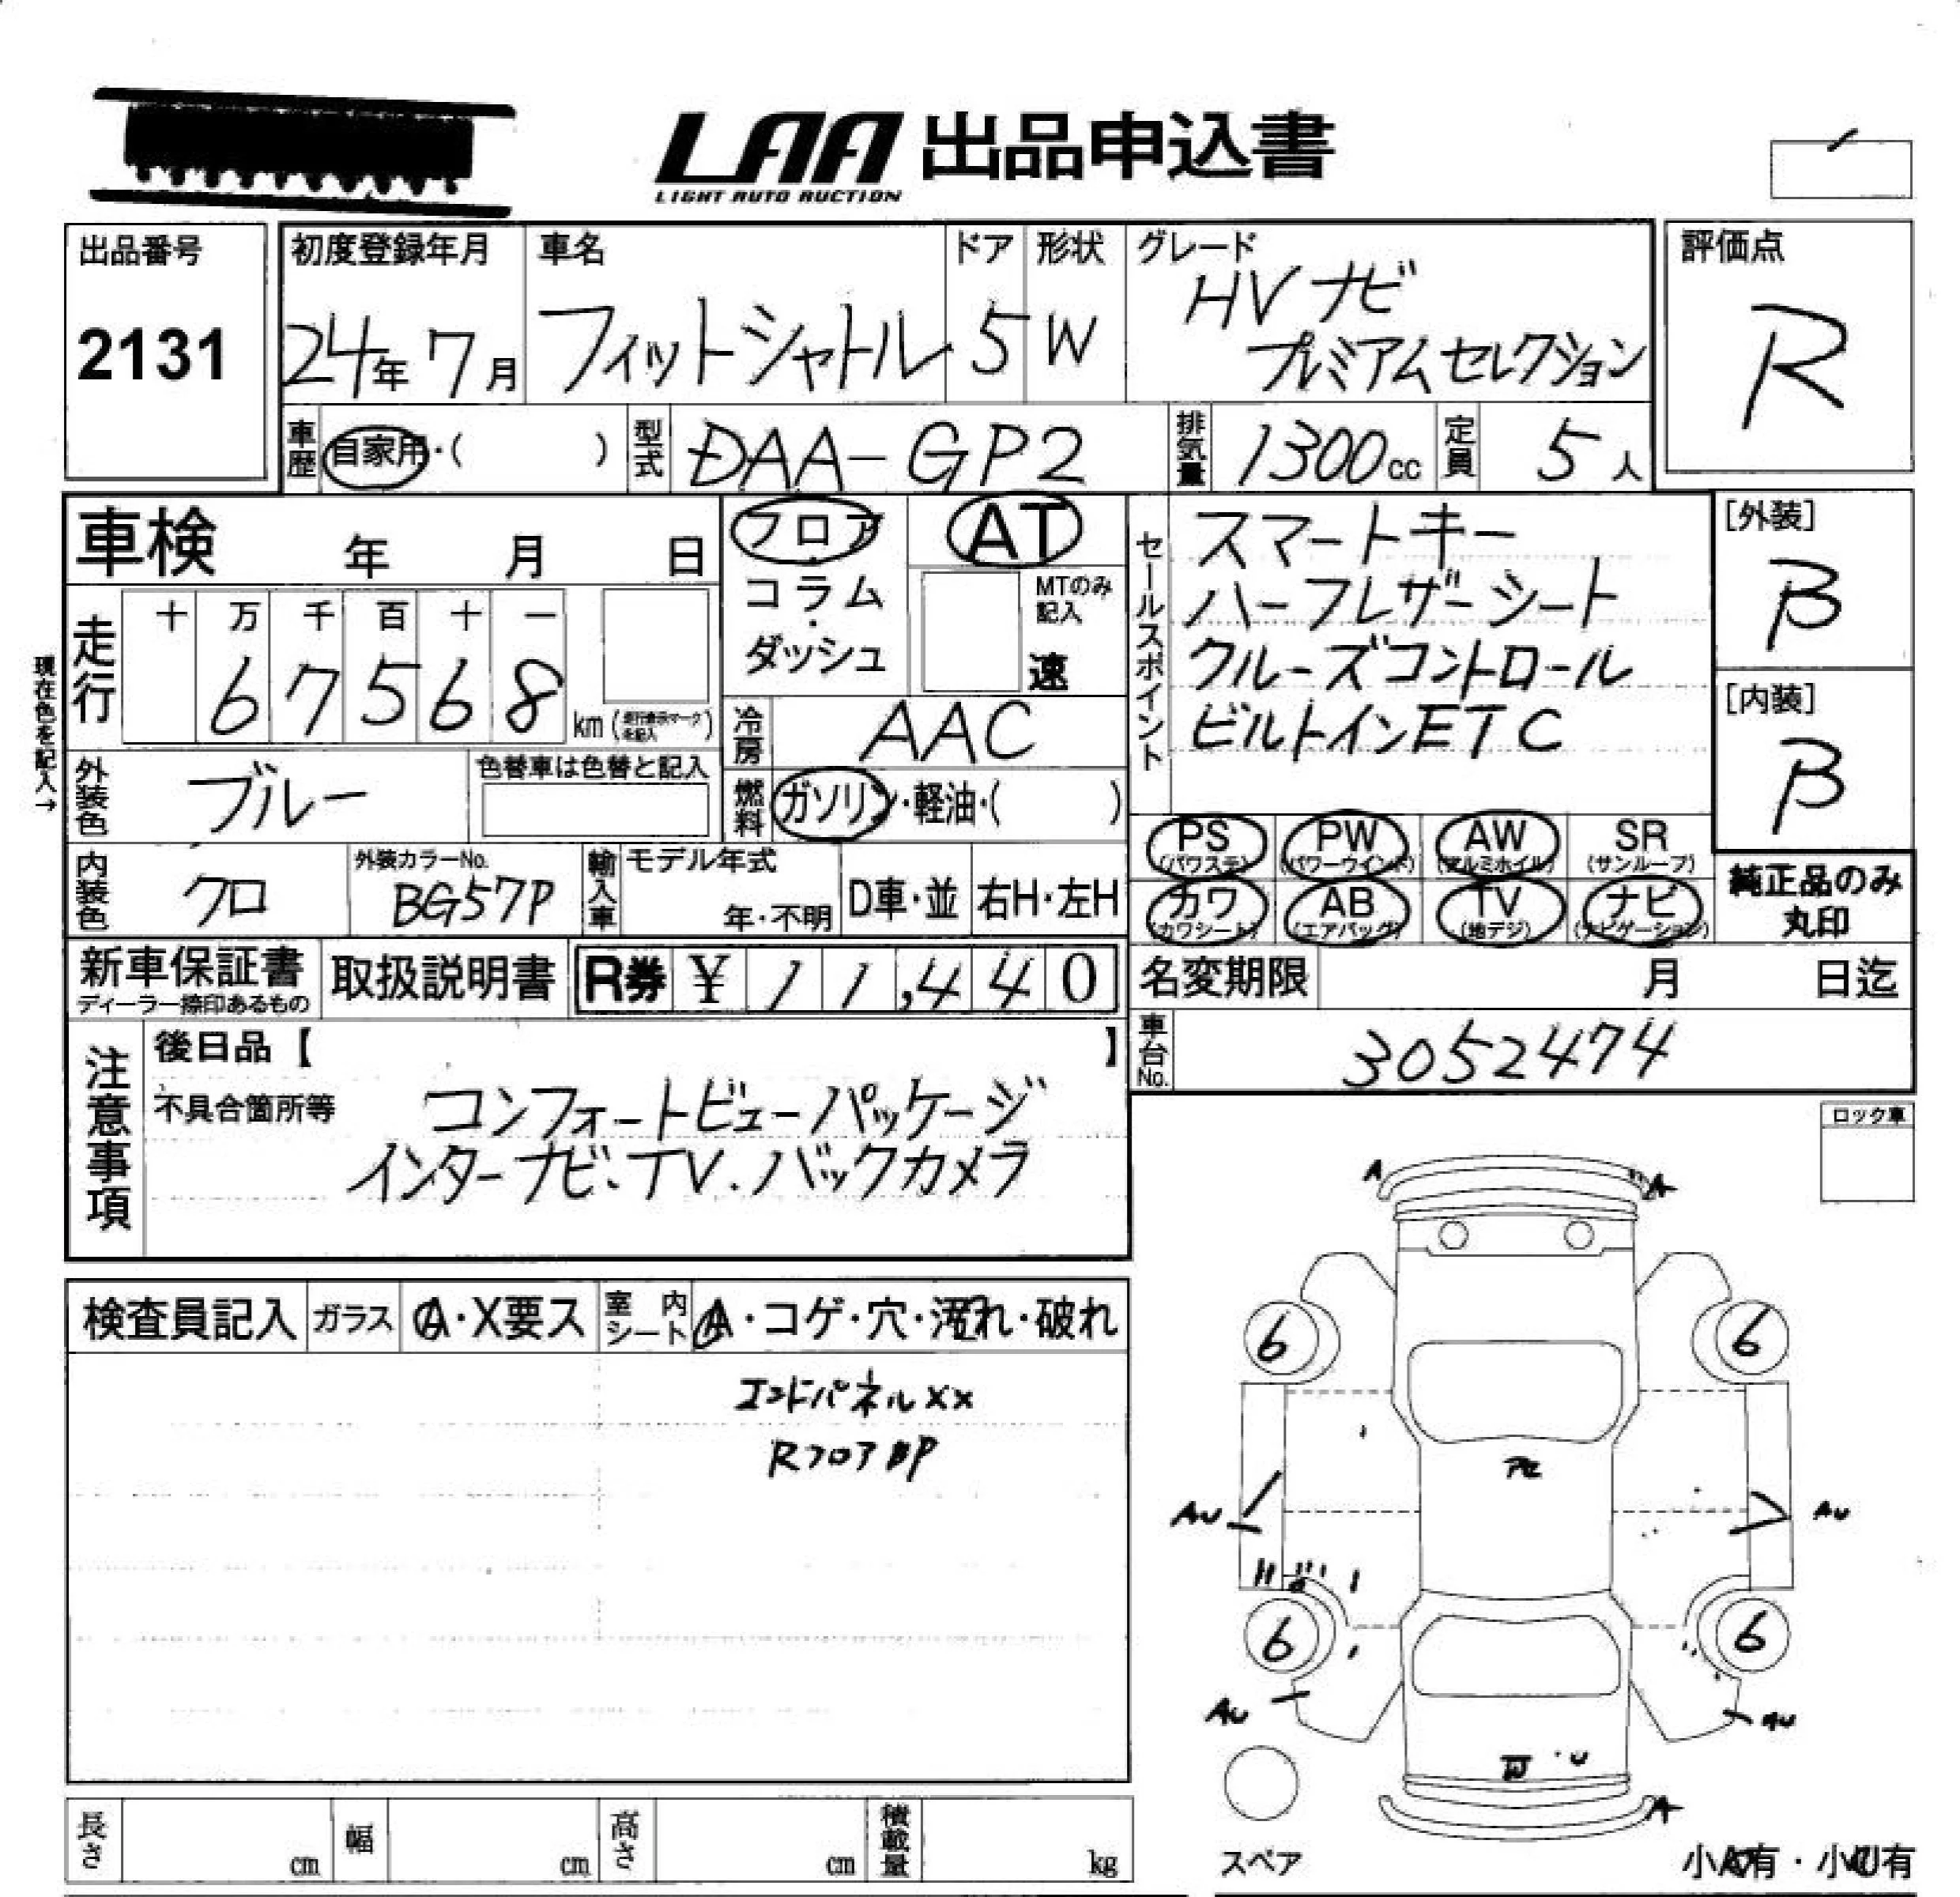 LAA 出品申込書
LIGHT AUTO AUCTION
出品番号
2131
初度登録年月
24年 7月
車名
フィットシャトル
ドア
5
形状
W
グレード
HV ナビ
プレミアムセレクション
評価点
R
車歴
自家用・( )
型式
DAA-GP2
排気量
1300cc
定員
5人
車検 年 月 日
フロア
コラム
ダッシュ
AT
MTのみ
記入
速
セールスポイント
スマートキー
ハーフレザーシート
クルーズコントロール
ビルトインETC
[外装]
B
[内装]
B
現在色を記入→
走行
十 万 千 百 十 一
6 7 5 6 8
km
冷房
AAC
外装色
ブルー
色替車は色替と記入
燃料
ガソリン・軽油・( )
PS
(パワステ)
PW
(パワーウインド)
AW
(アルミホイル)
SR
(サンルーフ)
カワ
(カワシート)
AB
(エアバッグ)
TV
(地デジ)
ナビ
(ナビゲーション)
純正品のみ
丸印
内装色
クロ
外装カラーNo.
BG57P
輸入車
モデル年式
年・不明
D車・並
右H・左H
新車保証書
ディーラー捺印あるもの
取扱説明書
R券 ¥ 11,440
名変期限 月 日迄
車台No.
3052474
注意事項
後日品【 】
不具合箇所等
コンフォートビューパッケージ
インターナビ、TV、バックカメラ
ロック車
検査員記入
ガラス
A・X要ス
室内シート
A・コゲ・穴・濡れ・破れ
エンドパネルXX
RフロアBP
A
A
6
6
AU
AU
6
6
AU
AU
W
U
A
スペア
長さ cm
幅 cm
高さ cm
積載量 kg
小A有・小U有